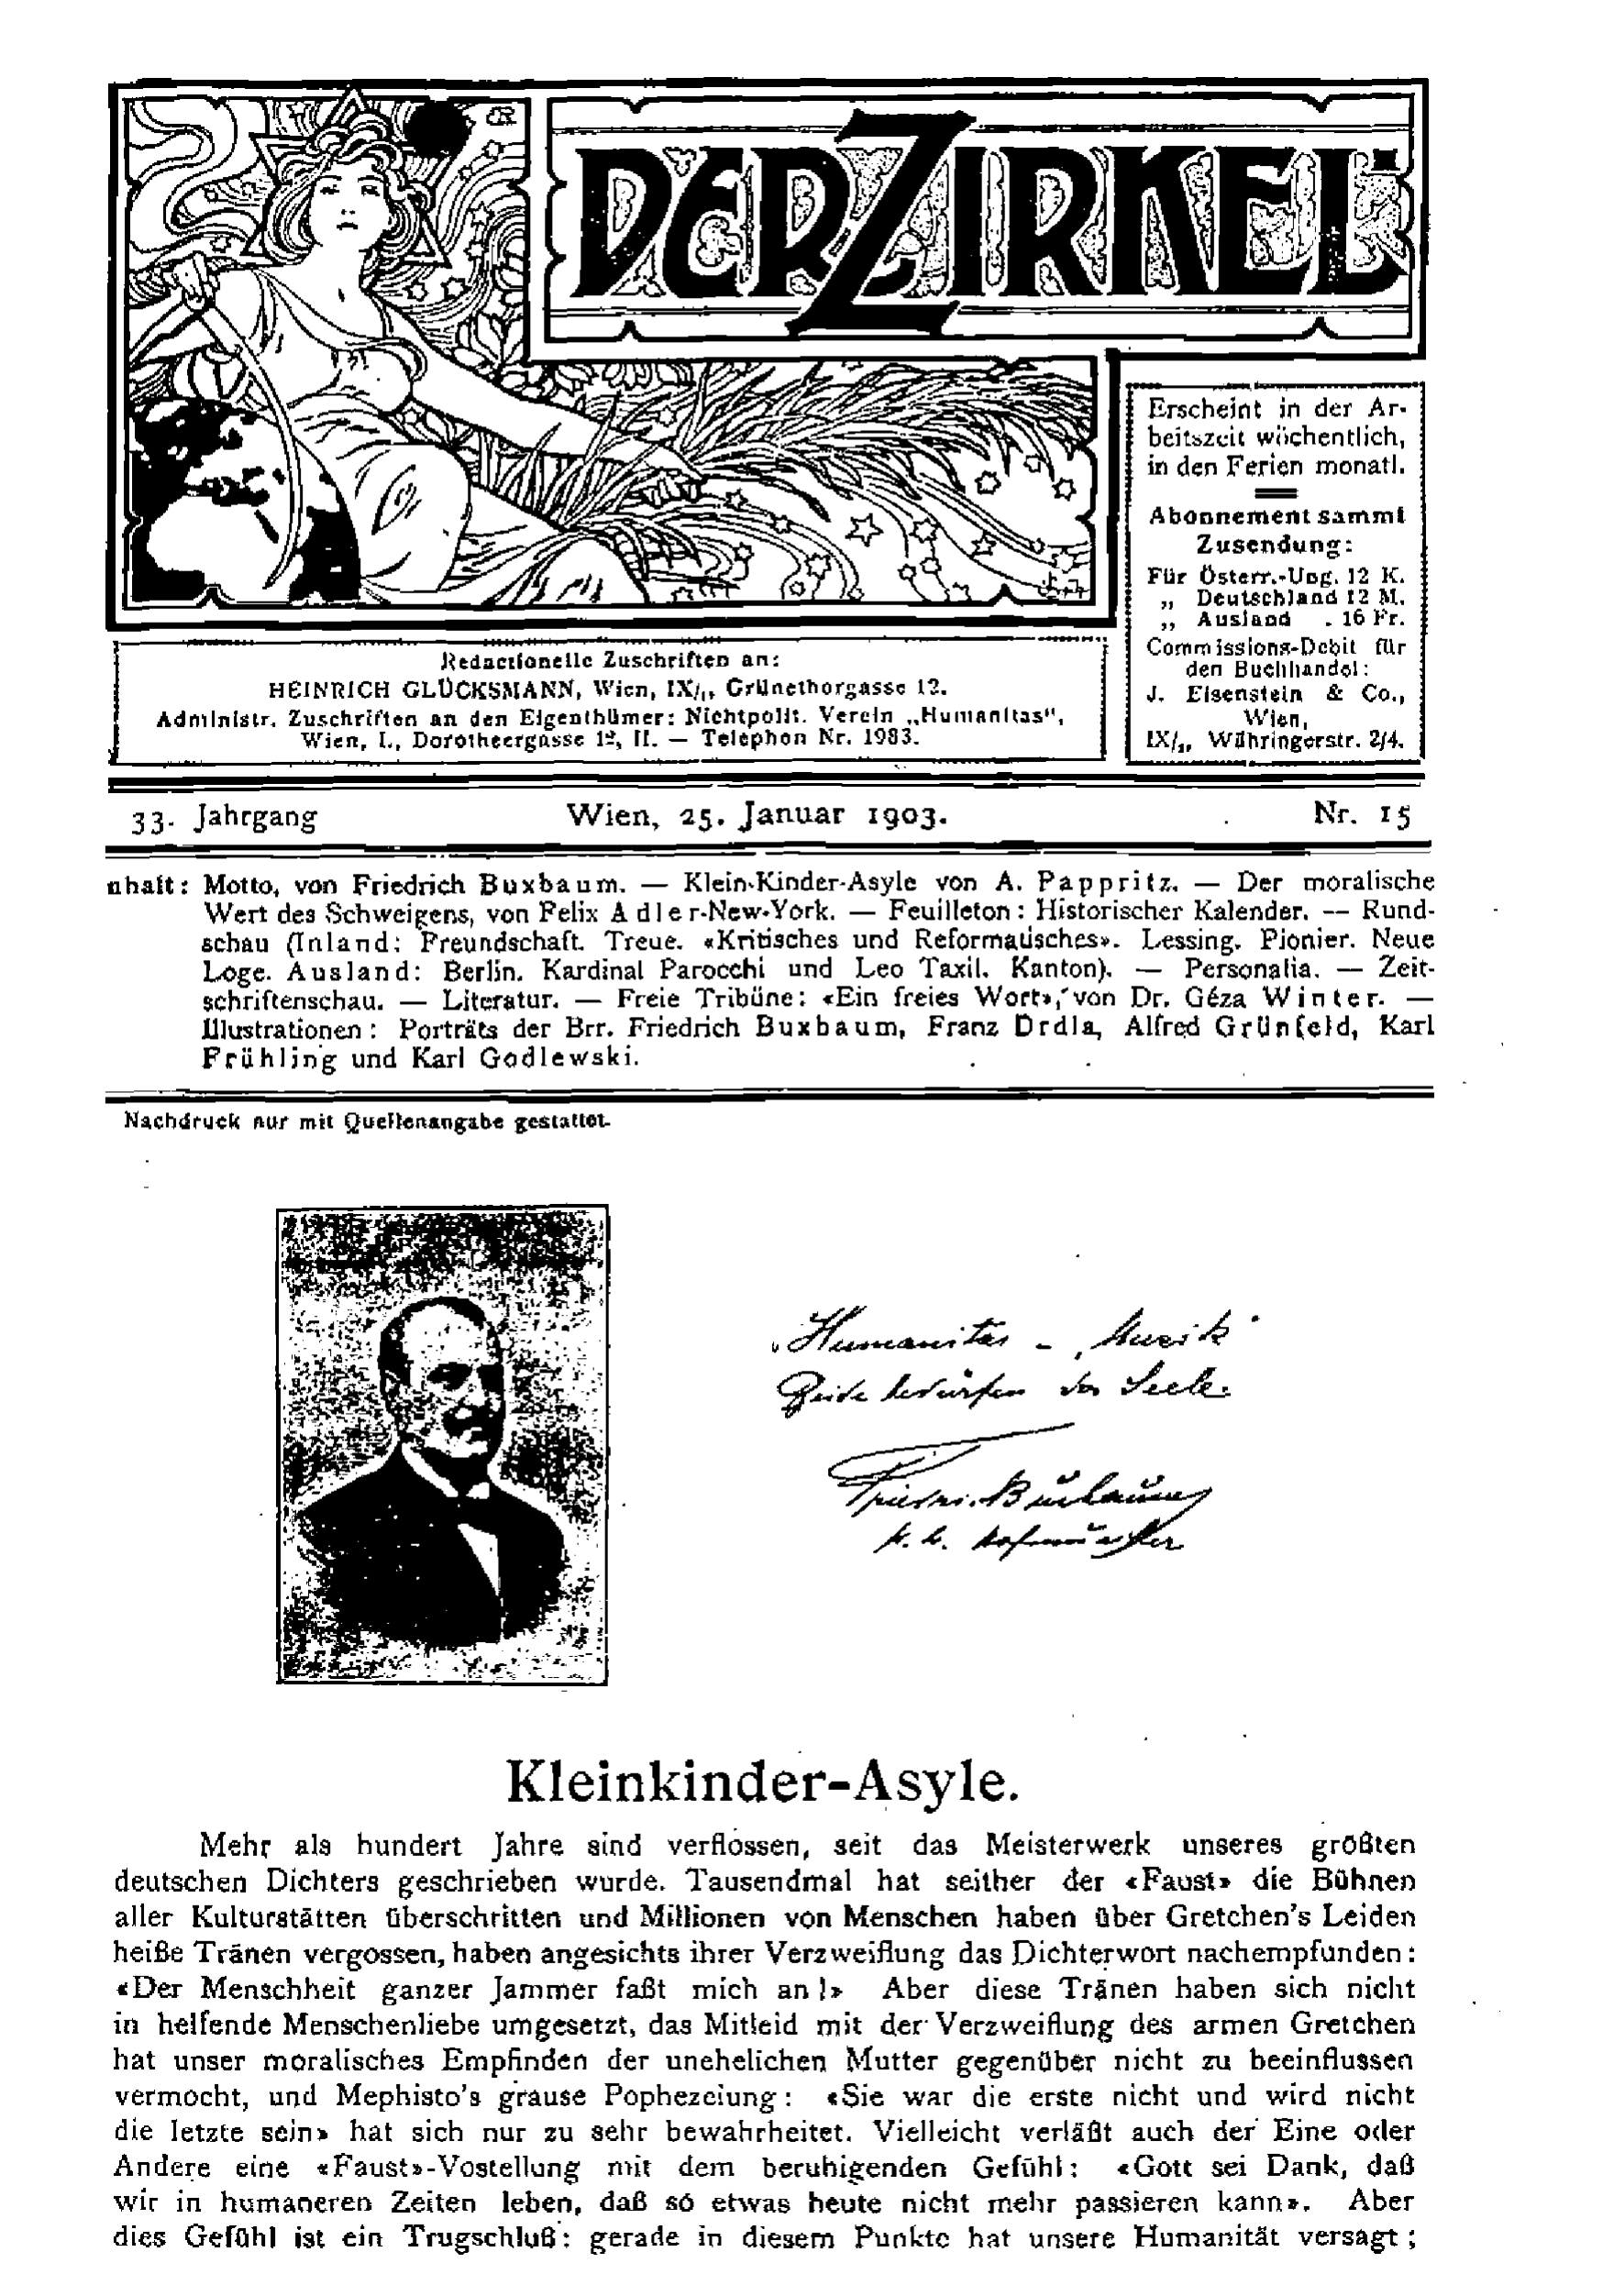 DER ZIRKEL
Erscheint in der Ar-
beitszeit wöchentlich,
in den Ferien monatl.
Abonnement sammt
Zusendung:
Für Österr.-Ung. 12 K.
„ Deutschland 12 M.
„ Ausland . 16 Fr.
Commissions-Debit für
den Buchhandel:
J. Eisenstein & Co.,
Wien,
IX/1, Währingerstr. 2/4.
Redactionelle Zuschriften an:
HEINRICH GLÜCKSMANN, Wien, IX/1, Grünethorgasse 12.
Administr. Zuschriften an den Eigenthümer: Nichtpolit. Verein „Humanitas",
Wien, I., Dorotheergasse 12, II. — Telephon Nr. 1983.
33. Jahrgang Wien, 25. Januar 1903. Nr. 15
nhalt: Motto, von Friedrich Buxbaum. — Klein-Kinder-Asyle von A. Pappritz. — Der moralische
Wert des Schweigens, von Felix Adler-New-York. — Feuilleton: Historischer Kalender. — Rund-
schau (Inland: Freundschaft. Treue. «Kritisches und Reformatisches». Lessing. Pionier. Neue
Loge. Ausland: Berlin. Kardinal Parocchi und Leo Taxil. Kanton). — Personalia. — Zeit-
schriftenschau. — Literatur. — Freie Tribüne: «Ein freies Wort», von Dr. Géza Winter. —
Illustrationen: Porträts der Brr. Friedrich Buxbaum, Franz Drdla, Alfred Grünfeld, Karl
Frühling und Karl Godlewski.
Nachdruck nur mit Quellenangabe gestattet.
„Humanitas - „Musik"
Beide bedürfen der Seele.
Friedr. Buxbaum
k. k. Hofmusiker
Kleinkinder-Asyle.
Mehr als hundert Jahre sind verflossen, seit das Meisterwerk unseres größten
deutschen Dichters geschrieben wurde. Tausendmal hat seither der «Faust» die Bühnen
aller Kulturstätten überschritten und Millionen von Menschen haben über Gretchen's Leiden
heiße Tränen vergossen, haben angesichts ihrer Verzweiflung das Dichterwort nachempfunden:
«Der Menschheit ganzer Jammer faßt mich an!» Aber diese Tränen haben sich nicht
in helfende Menschenliebe umgesetzt, das Mitleid mit der Verzweiflung des armen Gretchen
hat unser moralisches Empfinden der unehelichen Mutter gegenüber nicht zu beeinflussen
vermocht, und Mephisto's grause Pophezeiung: «Sie war die erste nicht und wird nicht
die letzte sein» hat sich nur zu sehr bewahrheitet. Vielleicht verläßt auch der Eine oder
Andere eine «Faust»-Vostellung mit dem beruhigenden Gefühl: «Gott sei Dank, daß
wir in humaneren Zeiten leben, daß so etwas heute nicht mehr passieren kann». Aber
dies Gefühl ist ein Trugschluß: gerade in diesem Punkte hat unsere Humanität versagt;